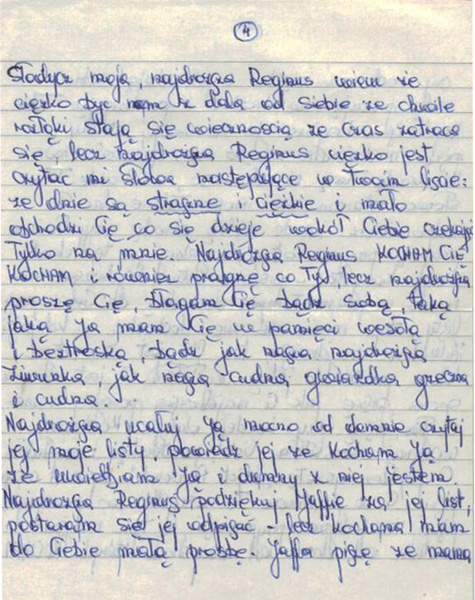 4
Słodycz moja, najdroższa Reginus wiem że
ciężko być nam z dala od siebie że chwile
rozłąki stają się wiecznością że czas zatraca
się, lecz najdroższa Reginus ciężko jest
czytać mi słowa następujące w Twoim liście:
że dnie są straszne i ciężkie i mało
obchodzi Cię co się dzieje wokół Ciebie czekając
tylko na mnie. Najdroższa Reginus KOCHAM CIĘ
KOCHAM i również pragnę co Ty, lecz najdroższa
proszę Cię, błagam Cię bądź sobą taką
jaką ja mam Cię w pamięci wesołą
i beztroską, bądź jak nasza najdroższa
jak nasza cudna gwiazdka grzeczna
i cudna.
Najdroższa ucałuj ją mocno od demnie czytaj
jej moje listy, powiedz jej że kocham ją
że uwielbiam ją i dumny z niej jestem
Najdroższa Reginus podziękuj Jaffie za jej list,
postaram się jej odpisać - lecz kochana mam
do Ciebie małą prośbę. Jaffa pisze że mama